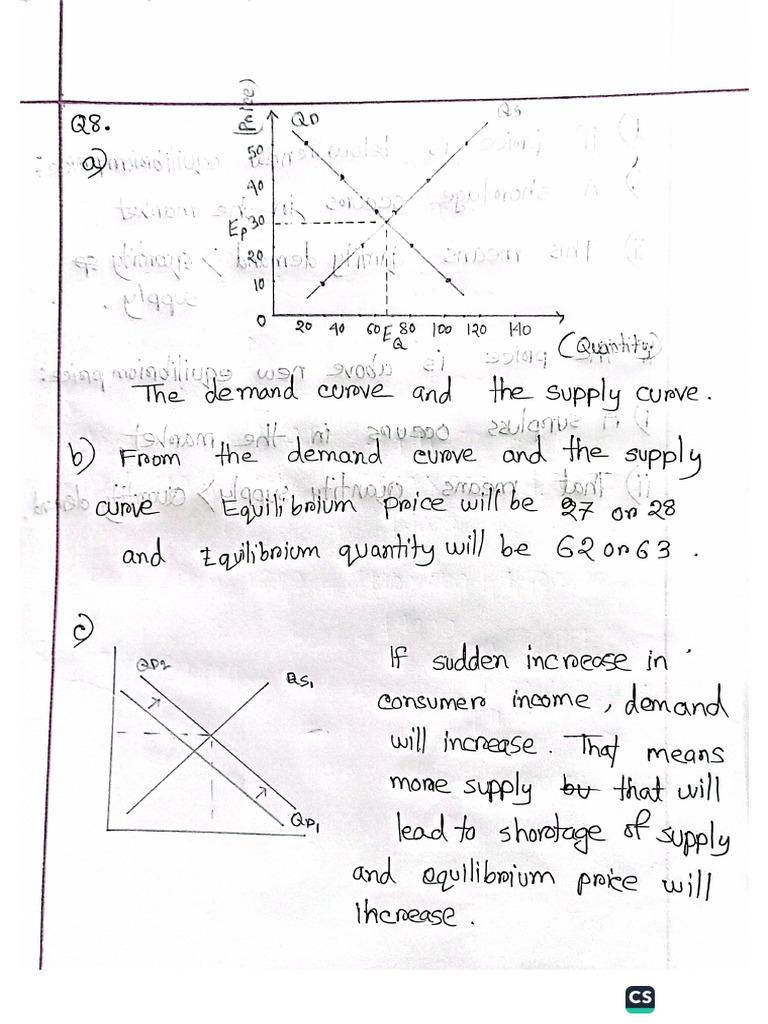 Q8.
a)
(Price)
QD
QS
50
40
Ep 30
20
10
0 20 40 60 EQ 80 100 120 140
(Quantity)
The demand curve and the supply curve.
b) From the demand curve and the supply
curve Equilibrium price will be 27 or 28
and Equilibrium quantity will be 62 or 63.
c)
QD2
QS1
QD1
If sudden increase in
consumer income, demand
will increase. That means
more supply bu that will
lead to shorotage of supply
and equilibrium price will
increase.
CS